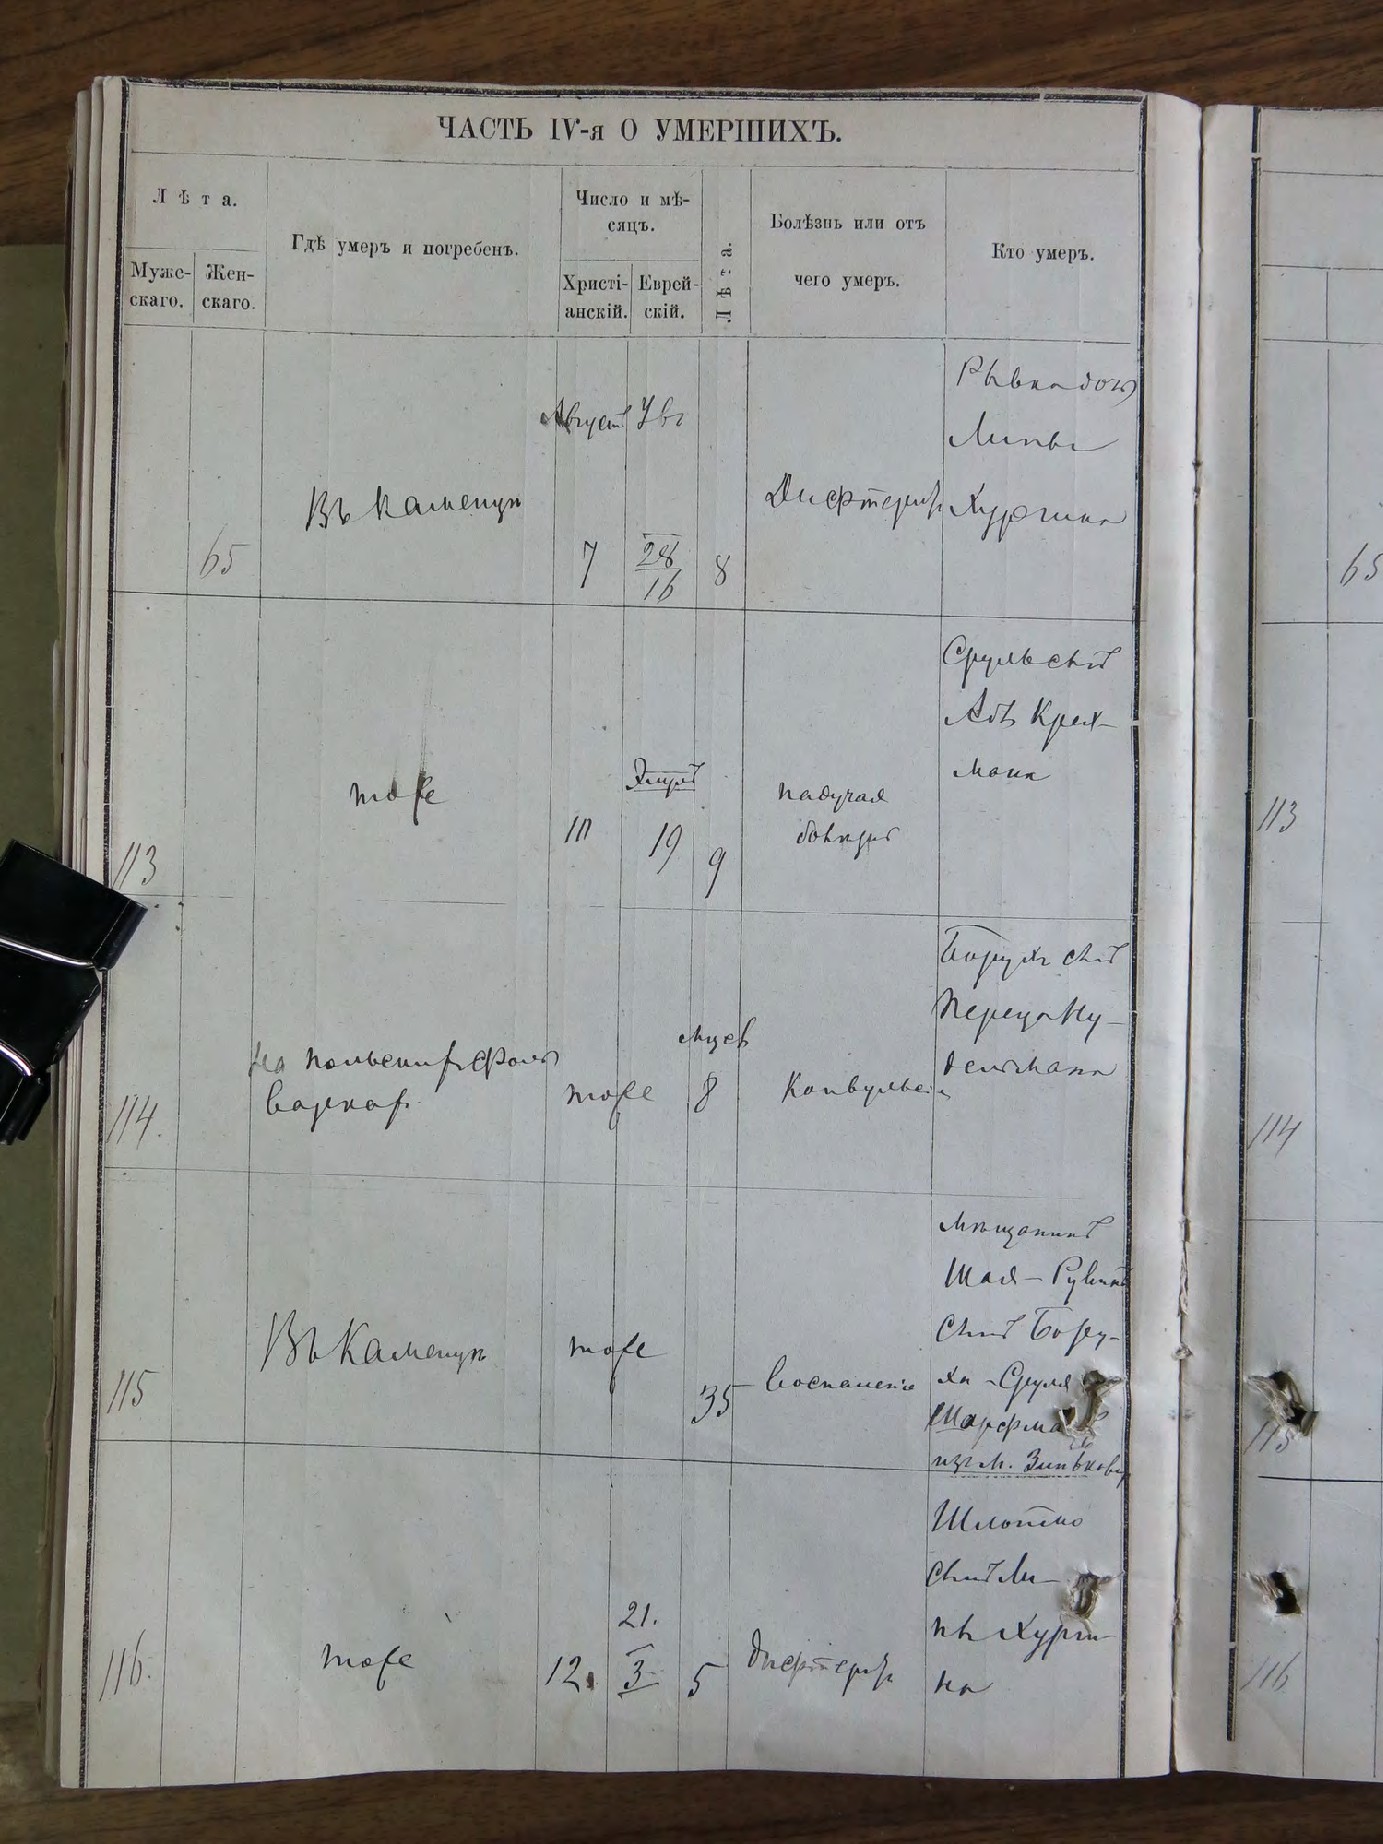 ЧАСТЬ IV-я О УМЕРШИХЪ.
Лѣта.
Мужс-
скаго.
Жен-
скаго.
Гдѣ умеръ и погребенъ.
Число и мѣ-
сяцъ.
Христі-
анскій.
Еврей-
скій.
Лѣта.
Болѣзнь или отъ
чего умеръ.
Кто умеръ.
65
Въ Каменцѣ
Августъ
7
28
16
8
Дифтеритъ
Рывка дочь
Липы
Хургина
65
113
тоже
10
Элулъ
19
9
падучая
болѣзнь
Сруль сынъ
Абъ Крех-
мана
113
114.
на польскихъ фольв
варкахъ
тоже
мцев
8
Конвульсіи
Борухъ сынъ
Переца Ну-
дельмана
114
115
Въ Каменцѣ
тоже
35
Воспаленіе
Мѣщанинъ
Шая-Рувинъ
сынъ Бору-
ха-Сруля
Шарфма
изъ м. Зинькова
115
116.
тоже
12.
21.
3
5
Дифтеритъ
Шлотко
сынъ Ли-
пы Хурги-
на
116